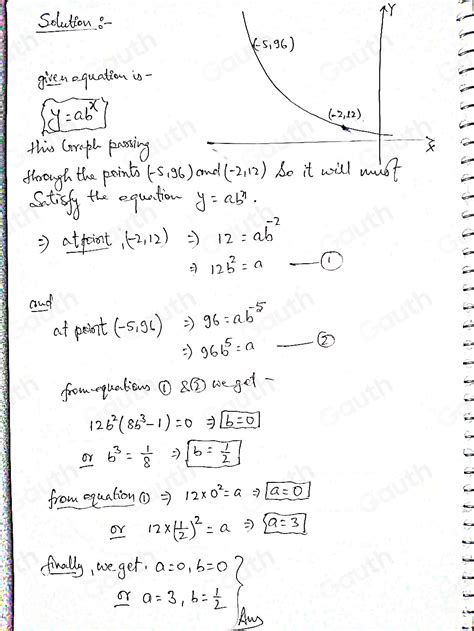 Solution :-
Y
(-5,96)
given equation is -
y = ab^x
(-2,12)
x
this Graph passing
through the points (-5,96) and (-2,12) So it will must
Satisfy the equation y = ab^x.
⇒ at point, (-2,12) ⇒ 12 = ab^-2
⇒ 12b^2 = a —— ①
and
at point (-5,96) ⇒ 96 = ab^-5
⇒ 96b^5 = a —— ②
from equations ① & ② we get -
12b^2(8b^3-1) = 0 ⇒ b=0
or b^3 = 1/8 ⇒ b = 1/2
from equation ① ⇒ 12×0^2 = a ⇒ a=0
or 12×(1/2)^2 = a ⇒ a=3
finally, we get. a=0, b=0
or a=3, b=1/2
Ans
Gauth